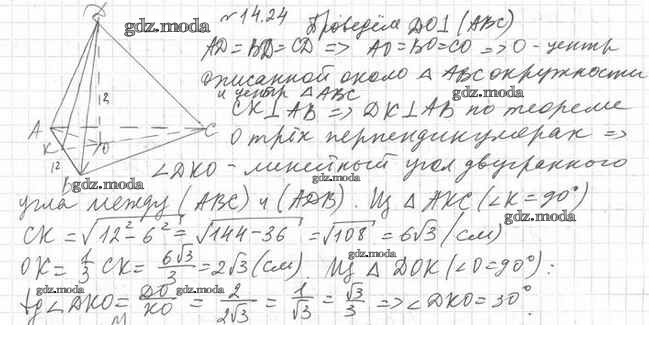 №14.24 Проведём DO⊥(ABC)
AD=BD=CD => AO=BO=CO => O - центр
описанной около △ABC окружности
и центр △ABC
CK⊥AB => DK⊥AB по теореме
о трёх перпендикулярах =>
∠DKO - линейный угол двугранного
угла между (ABC) и (ADB). Из △AKC (∠K=90°)
CK=√12²-6²=√144-36=√108=6√3 (см)
OK=1/3 CK=6√3/3=2√3 (см). Из △DOK (∠O=90°):
tg∠DKO=DO/KO=2/2√3=1/√3=√3/3 => ∠DKO=30°.
D
2
A
C
K
O
12
B
gdz.moda
gdz.moda
gdz.moda
gdz.moda
gdz.moda
gdz.moda
gdz.moda
gdz.moda
gdz.moda